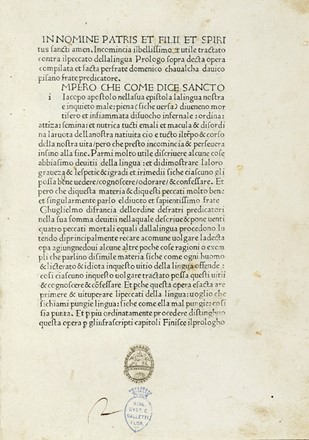 IN NOMINE PATRIS ET FILII ET SPIRI
tus sancti amen. Incomincia ilbellissimo & utile tractato
contra ilpeccato dellalingua Prologo sopra decta opera
compilata et facta perfrate domenico chaualcha dauico
pisano frate predicatore.
MPERO CHE COME DICE SANCTO
i Iacopo apostolo nellasua epistola lalingua nostra
e inquieto male: piena (siche uersa) diueneno mor
tifero et infiammata difuocho infernale : ordina:
attiza: semina: et nutrica tucti emali et macula & disordi
na laruota dellanostra natiuita cio e tucto iltēpo & corso
della nostra uita/pero che presto incomincia & perseuera
insino alla fine. Parmi molto utile discriuere alcune cose
abbiasimo deuitii della lingua: et didimostrare laloro
graueza & lespetie & igradi et irimedii siche ciascuno gli
possa bēne uedere/cognoscere/odorare/& cōfessare. Et
pero che diquesta materia & diquesti peccati molto bene
et singularmente parlo eldiuoto et sapientissimo frate
Ghuglielmo difrancia dellordine defratri predicatori
nella sua somma deuitii nellaquale descriue & pone uenti
quatro peccati mortali equali dallalingua procedono In
tendo diprincipalmente recare acomune uolgare ladecta
opa agiungnedoui alcune altre poche cose ragioni o exem
pli che parlino disimile materia siche come ogni huomo
& licterato & idiota inquesto uitio della lingua offende :
cosi ciascuno inquesto uolgare tractato possa questi uitii
& cognoscere & cōfessare. Et pche questa opera e facta are
primere & uituperare lipeccati della lingua: uoglio che
sichiami pungie lingua: siche come ella mal pungie: cosi
sia punta. Et p piu ordinatamente procedere distinghuo
questa opera p gliinfrascripti capitoli Finisce ilprologho